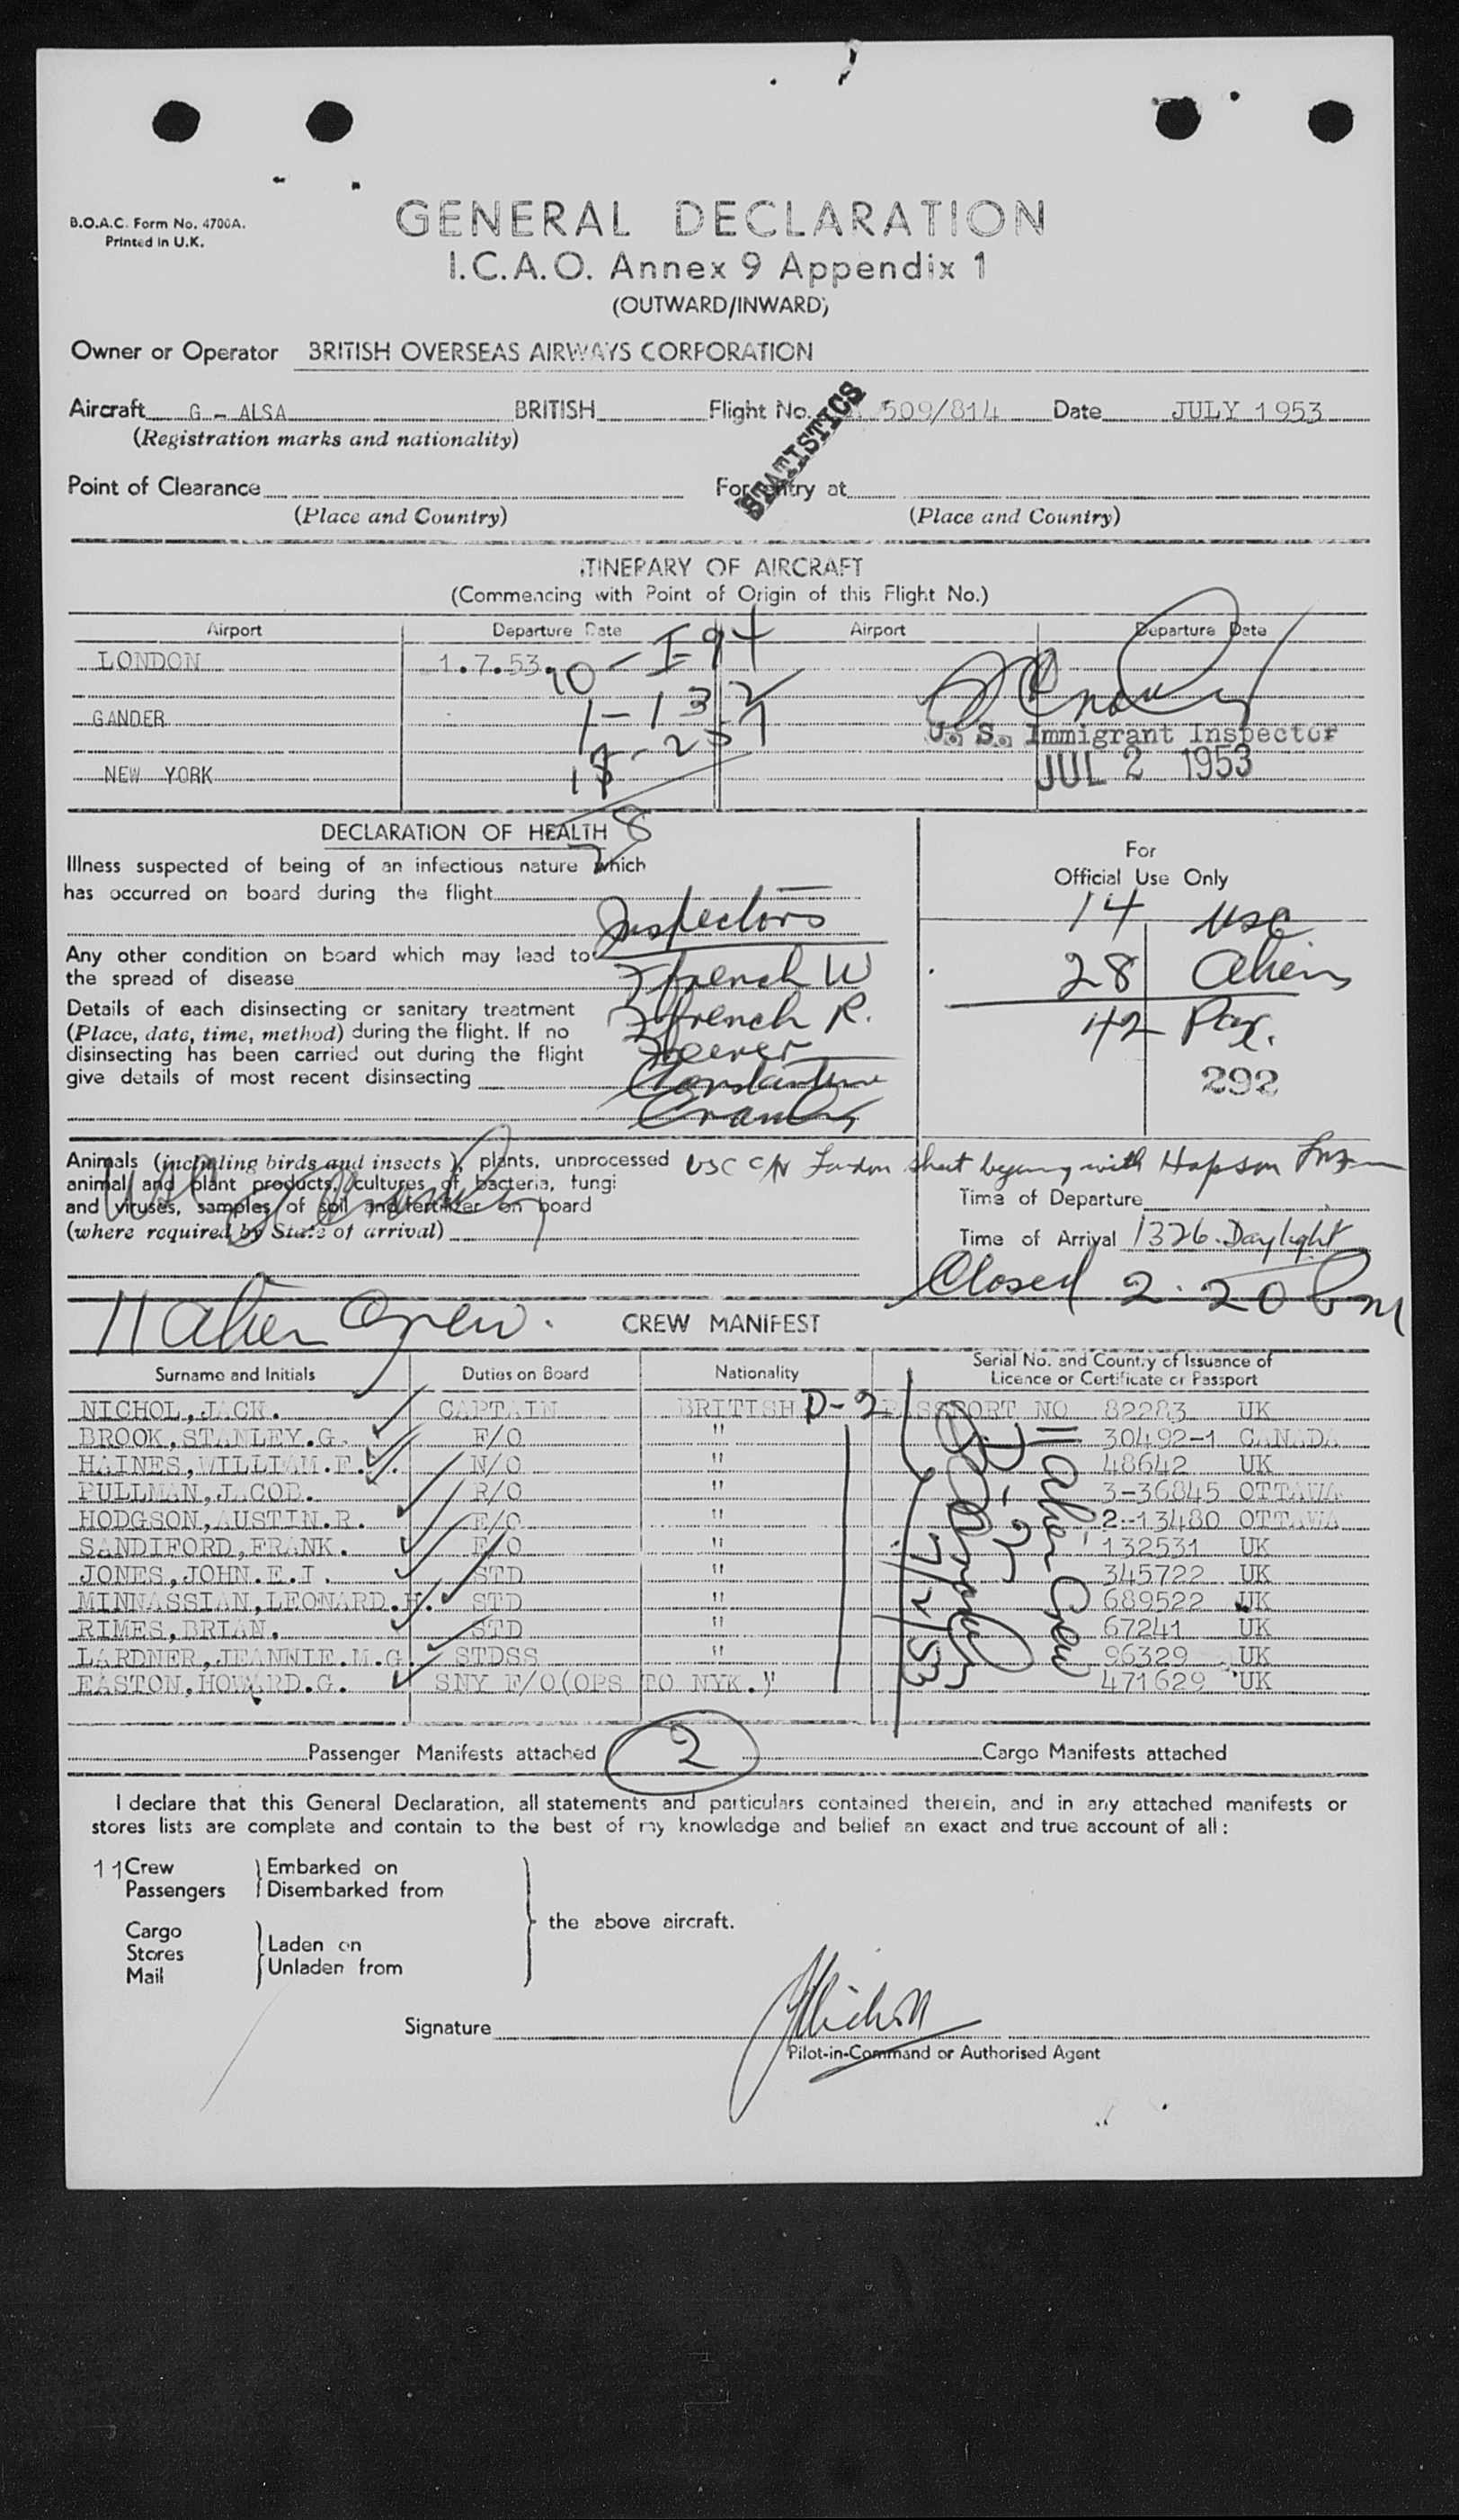 B.O.A.C. Form No. 4700A.
Printed in U.K.
GENERAL DECLARATION
I.C.A.O. Annex 9 Appendix 1
(OUTWARD/INWARD)
Owner or Operator BRITISH OVERSEAS AIRWAYS CORPORATION
Aircraft G - ALSA BRITISH Flight No. 509/814 Date JULY 1953
(Registration marks and nationality)
STATISTICS
Point of Clearance For entry at
(Place and Country) (Place and Country)
ITINERARY OF AIRCRAFT
(Commencing with Point of Origin of this Flight No.)
Airport Departure Date Airport Departure Date
LONDON 1.7.53.
GANDER
NEW YORK
U. S. Immigrant Inspector
JUL 2 1953
DECLARATION OF HEALTH
Illness suspected of being of an infectious nature which
has occurred on board during the flight
Any other condition on board which may lead to
the spread of disease
Details of each disinsecting or sanitary treatment
(Place, date, time, method) during the flight. If no
disinsecting has been carried out during the flight
give details of most recent disinsecting
Inspectors
French W
French R.
Constantine
For
Official Use Only
14 USC
28 Aliens
42 Pax.
292
Animals (including birds and insects), plants, unprocessed
animal and plant products, cultures of bacteria, fungi
and viruses, samples of soil and fertilizer on board
(where required by State of arrival)
Time of Departure
Time of Arrival 1326 Daylight
Closed 2.20 Pm
11 Alien Crew.
CREW MANIFEST
Surname and Initials Duties on Board Nationality Serial No. and Country of Issuance of
Licence or Certificate or Passport
NICHOL,JACK. CAPTAIN BRITISH D-2 PASSPORT NO 82283 UK
BROOK,STANLEY.G. F/O " 30492-1 CANADA
HAINES,WILLIAM.F. N/O " 48642 UK
PULLMAN,JACOB. R/O " 3-36845 OTTAWA
HODGSON,AUSTIN.R. E/O " 2-13480 OTTAWA
SANDIFORD,FRANK. E/O " 132531 UK
JONES,JOHN.E.I. STD " 345722 UK
MINNASSIAN,LEONARD.H. STD " 689522 UK
RIMES,BRIAN. STD " 67241 UK
LARDNER,JEANNIE.M.G. STDSS " 96329 UK
EASTON,HOWARD.G. SNY F/O(OPS TO NYK.) " 471629 UK
11 Alien Crew
D-2
7/2/53
Passenger Manifests attached 2 Cargo Manifests attached
I declare that this General Declaration, all statements and particulars contained therein, and in any attached manifests or
stores lists are complete and contain to the best of my knowledge and belief an exact and true account of all:
11 Crew Embarked on
Passengers Disembarked from
the above aircraft.
Cargo
Stores Laden on
Mail Unladen from
Signature
Pilot-in-Command or Authorised Agent